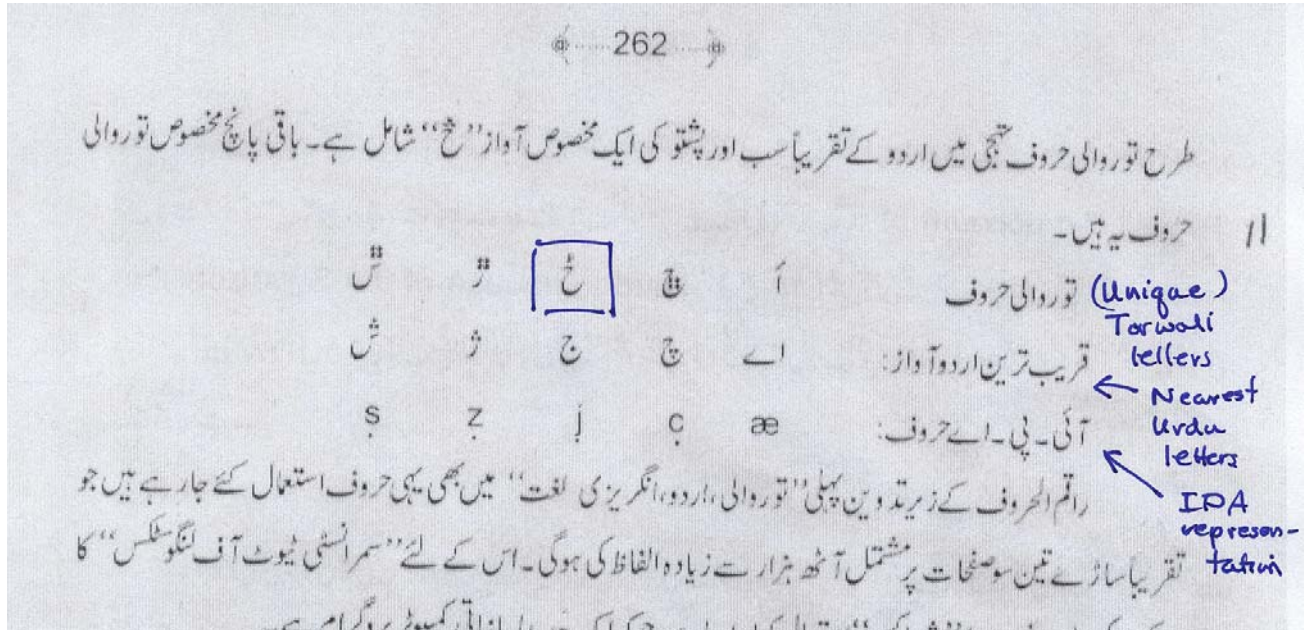 262
طرح توروالی حروف تہجی میں اردو کے تقریباً سب اور پشتو کی ایک مخصوص آواز ''څ'' شامل ہے۔ باقی پانچ مخصوص توروالی
حروف یہ ہیں۔
توروالی حروف أ ڇ ڂ ݫ
(Unique) Torwali letters
قریب ترین اردو آواز: اے چ ج ژ ش
Nearest Urdu letters
آئی۔ پی۔ اے حروف: æ c̣ j̣ ẓ ṣ
IPA represen-tation
راقم الحروف کے زیر تدوین پہلی ''توروالی، اردو، انگریزی لغت'' میں بھی یہی حروف استعمال کئے جا رہے ہیں جو
تقریباً ساڑے تین سو صفحات پر مشتمل آٹھ ہزار سے زیادہ الفاظ کی ہوگی۔ اس کے لئے ''سمر انسٹی ٹیوٹ آف لنگوسٹکس'' کا